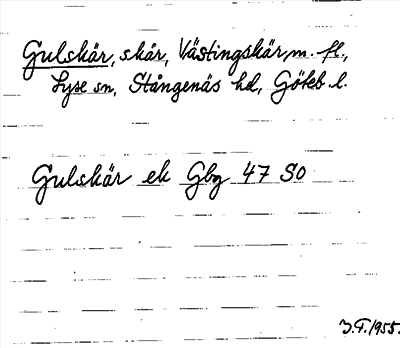 Gulskär, skär, Västingskär m. fl.,
Lyse sn, Stångenäs hd, Göteb. l.
Gulskär ek Gbg 47 SO
J.F. 1955.